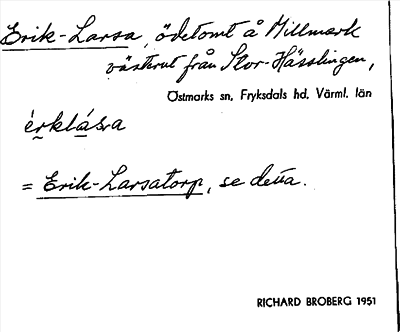 Erik-Larsa, ödetomt å Millmark
västerut från Stor-Hässlingen,
Östmarks sn, Fryksdals hd, Värml. län
èrklása
= Erik-Larsatorp, se detta.
RICHARD BROBERG 1951